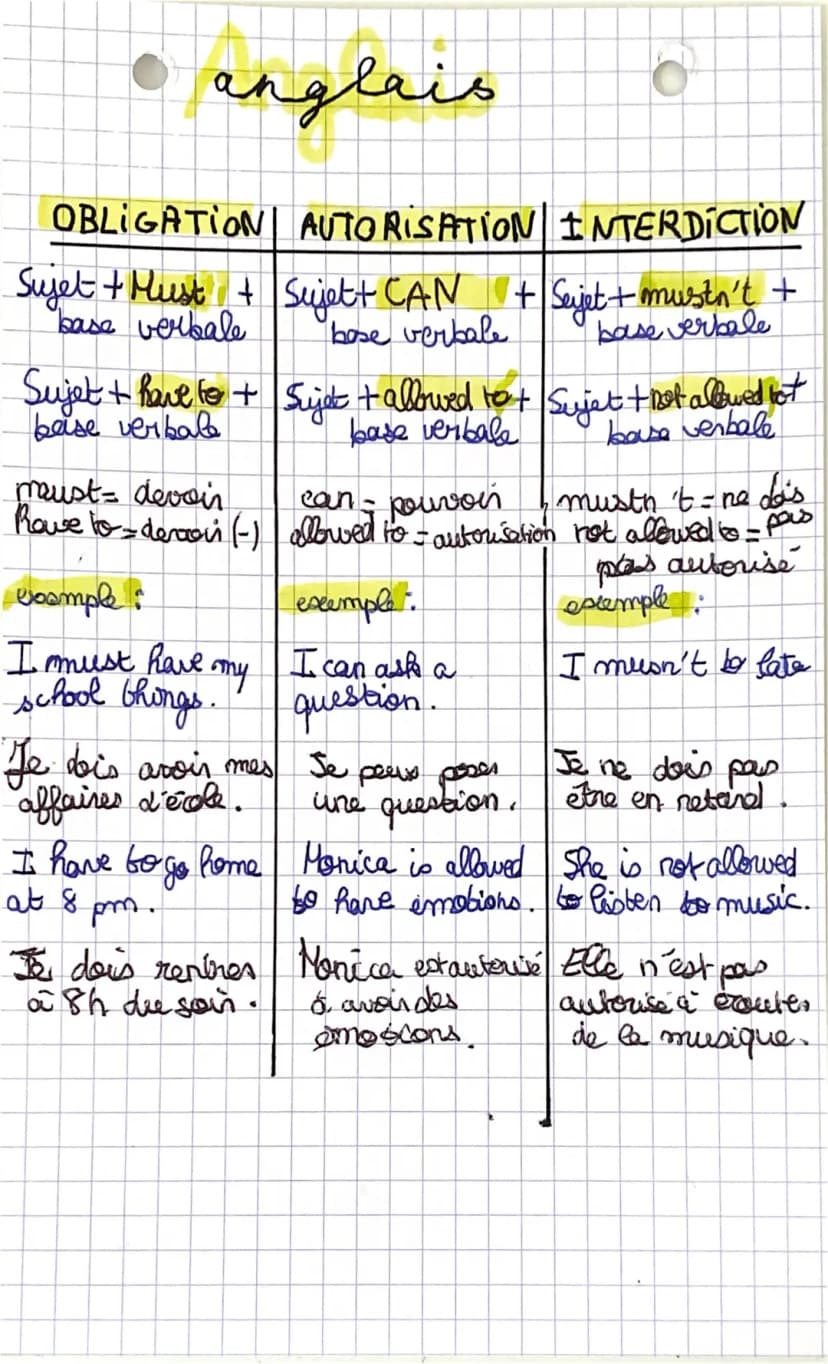 Anglais
anglais
OBLIGATION
Sujet + Must +
base verbale
Sujet + have to +
base verbale
must = devoir
have to = devoir (-)
example :
I must have my
school things.
Je dois avoir mes
affaires d'école.
I have to go home
at 8 pm.
Je dois rentrer
à 8h du soir.
AUTORISATION
Sujet + CAN +
base verbale
Sujet + allowed to +
base verbale
can = pouvoir
allowed to = autorisation
example :
I can ask a
question.
Je peux poser
une question.
Monica is allowed
to have emotions.
Monica est autorisé
à avoir des
émotions.
INTERDICTION
Sujet + mustn't +
base verbale
Sujet + not allowed to +
base verbale
mustn't = ne dois
pas
not allowed to =
pas autorisé
example :
I musn't be late
Je ne dois pas
être en retard.
She is not allowed
to listen to music.
Elle n'est pas
autorisé à écouter
de la musique.